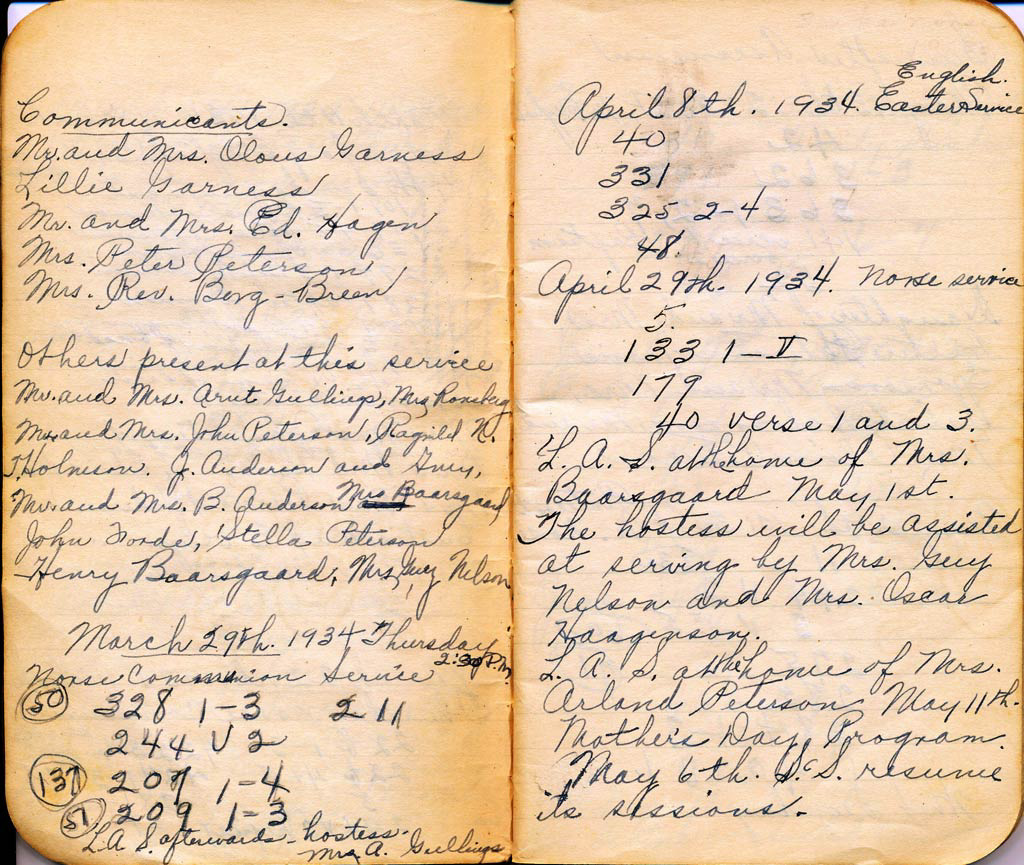 Communicants.
Mr. and Mrs. Olous Garness
Lillie Garness
Mr. and Mrs. Ed. Hagen
Mrs. Peter Peterson
Mrs. Rev. Borg-Breen
Others present at this service
Mr. and Mrs. Arnt Gullings, Mrs Ronsberg
Mr. and Mrs. John Peterson, Ragnild N.
T. Holmson. J. Anderson and Guy,
Mr. and Mrs. B. Anderson Mrs Baarsgaard
John Forde, Stella Peterson
Henry Baarsgaard, Mrs. Guy Nelson
March 29th. 1934, Thursday
2:30 P.M.
Norse Communion Service
50 328 1-3 2 11
244 V 2
137 207 1-4
51 209 1-3
L.A.S. afterwards - hostess -
Mrs. A. Gullings
English.
April 8th. 1934. Easter Service
40
331
325 2-4
48.
April 29th. 1934. Norse service
5.
133 1-V
179
40 verse 1 and 3.
L. A. S. at the home of Mrs.
Baarsgaard May 1st.
The hostess will be assisted
at serving by Mrs. Guy
Nelson and Mrs. Oscar
Haagenson.
L. A. S. at the home of Mrs.
Arland Peterson May 11th.
Mother's Day Program.
May 6th. S.S. resume
its sessions.